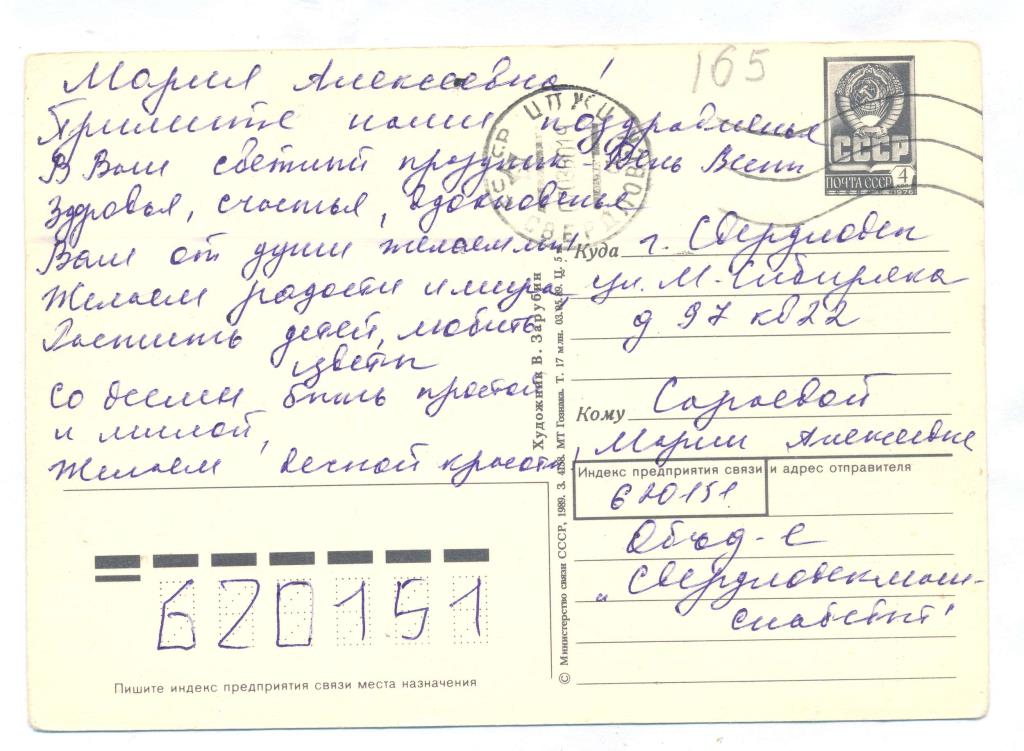 Мария Алексеевна!
Примите наши поздравленья
В Ваш светлый праздник - День Весны
Здоровья, счастья, вдохновенья
Вам от души желаем мы!
Желаем радости и мира,
Растить детей, любить
цветы
Со всеми быть простой
и милой,
Желаем весной красоты,
165
СССР
ПОЧТА СССР
4
1976
Куда г. Свердловск
ул. М-Сибиряка
д 97 кв 22
Кому Сараевой
Марии Алексеевне
Индекс предприятия связи и адрес отправителя
620151
Объед-е
"Свердловскмаш-
снабсбыт"
Художник В. Зарубин
© Министерство связи СССР, 1989. З. 4158. МТ Гознака. Т. 17 млн. 03.05.89. Ц. 5
620151
Пишите индекс предприятия связи места назначения